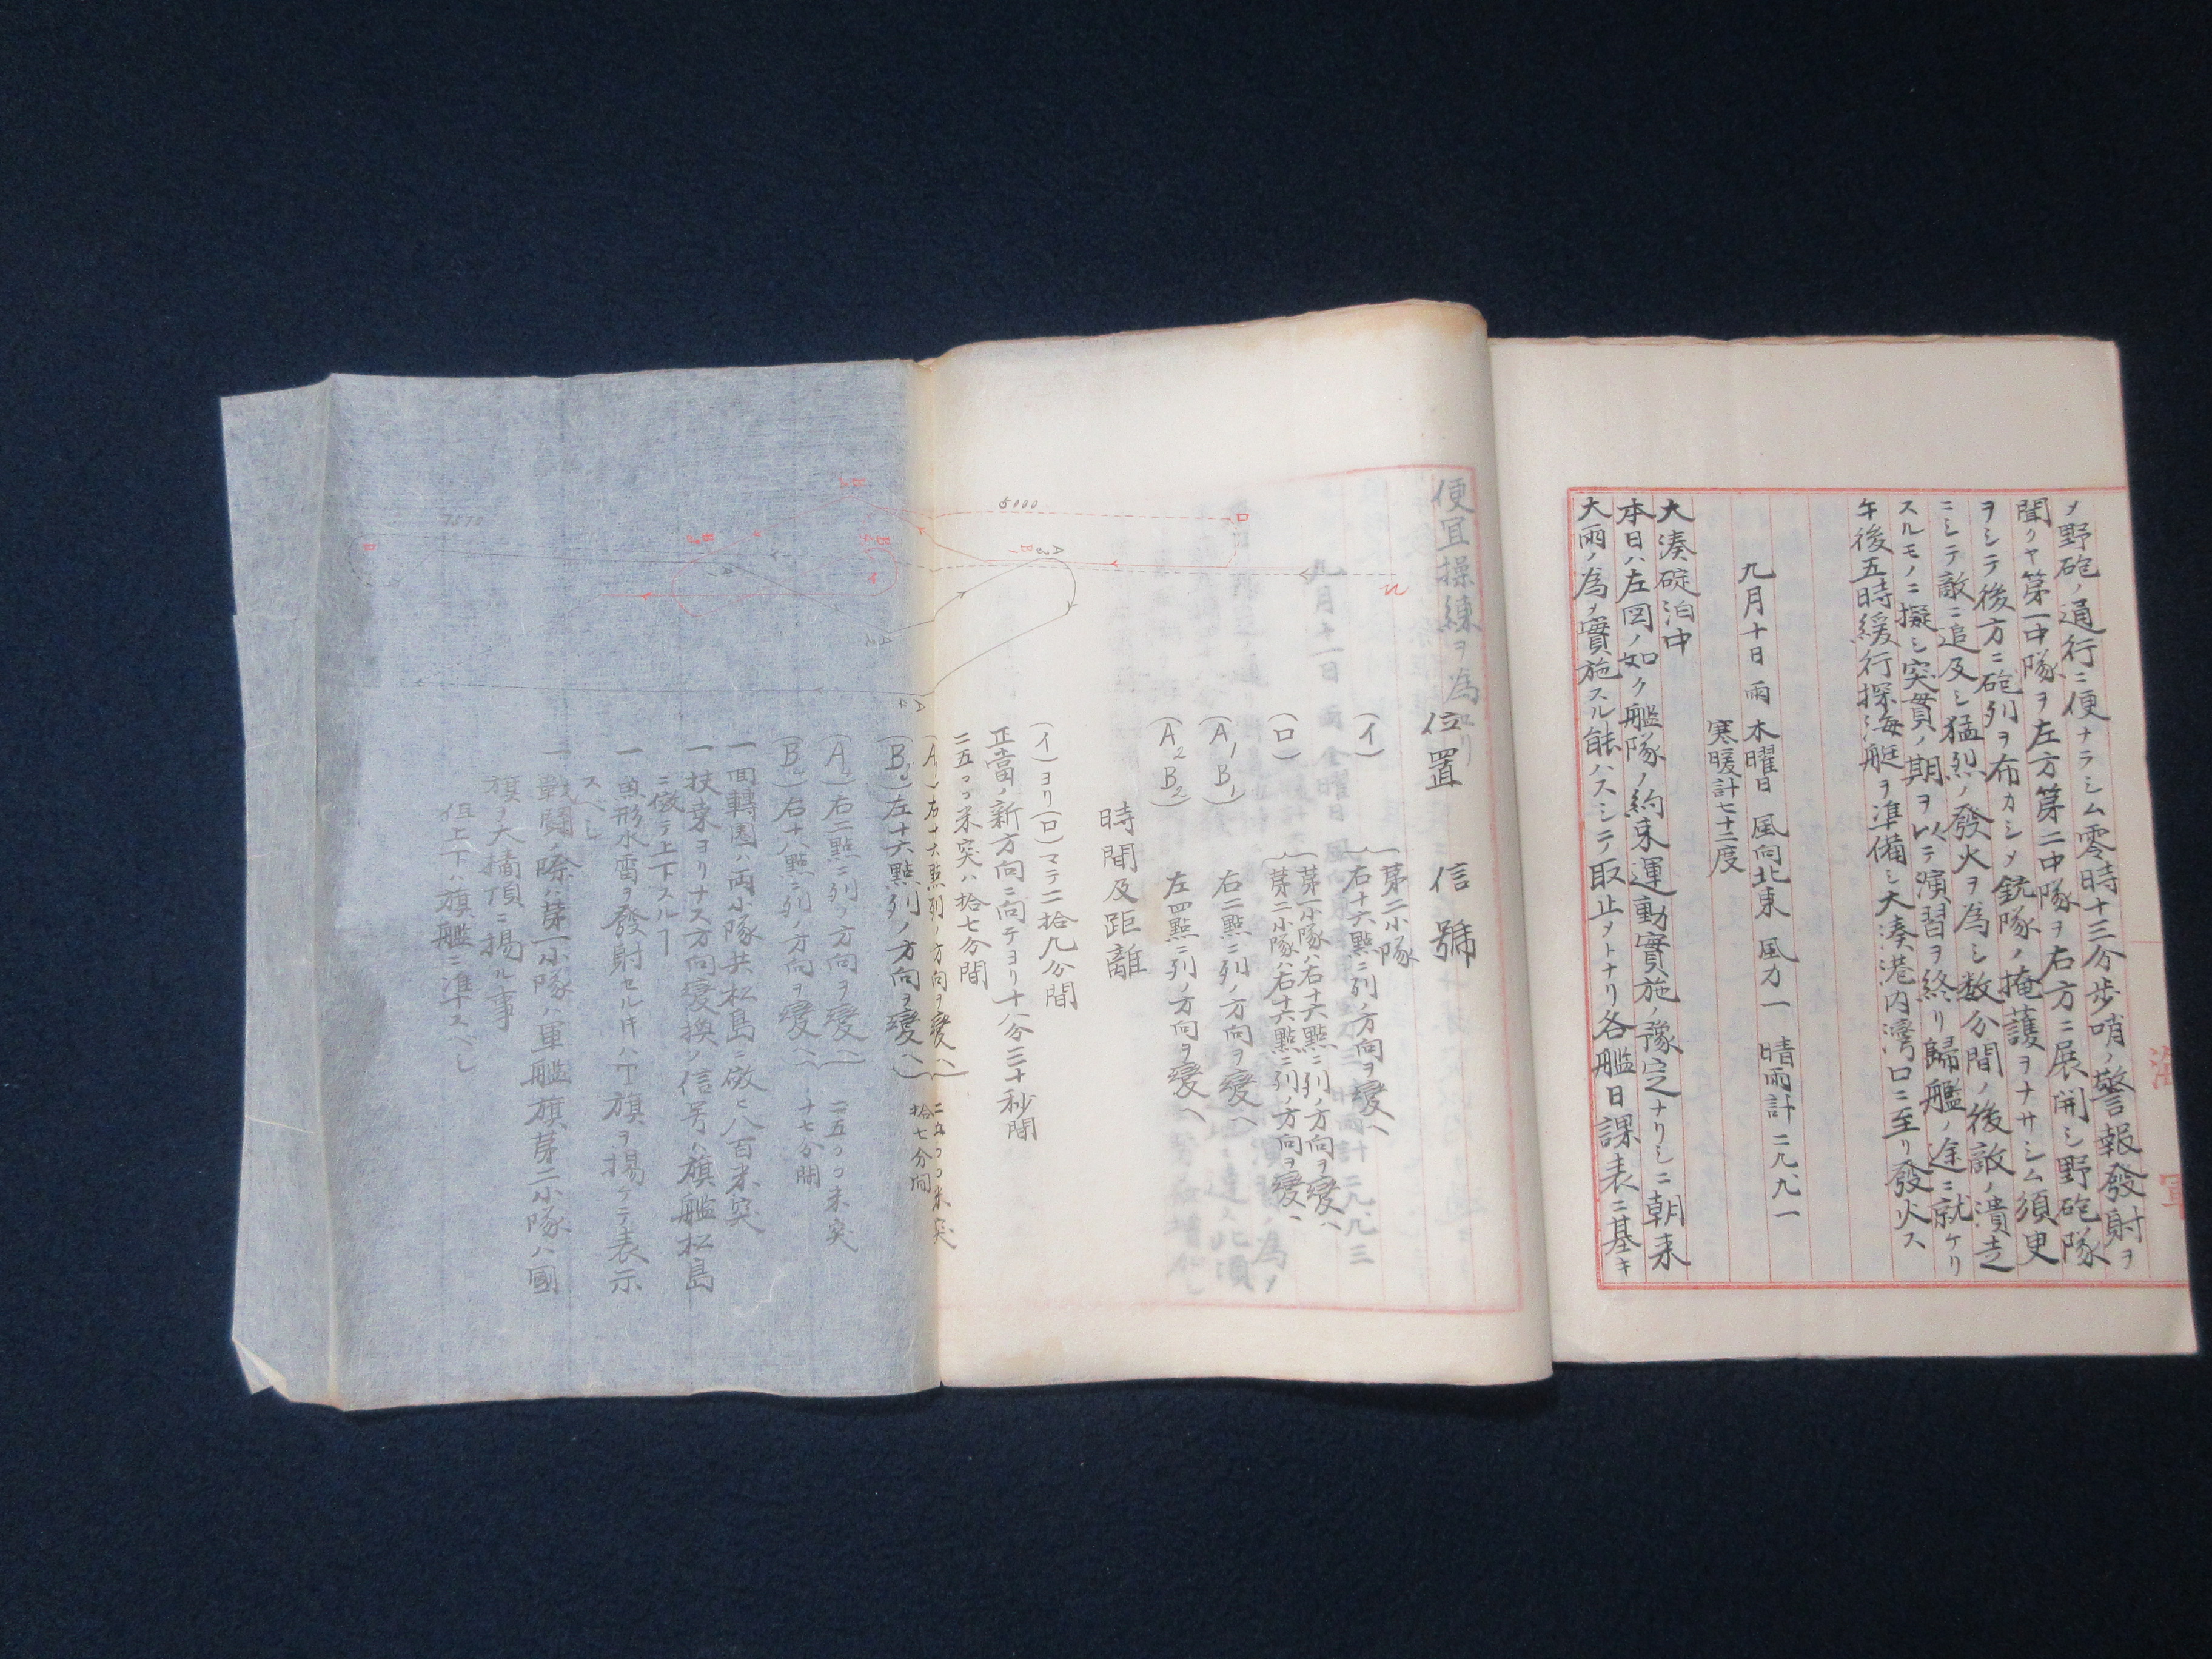 メ野砲ノ通行ニ便ナラシム零時十三分歩哨ノ警報發射ヲ
聞クヤ第一中隊ヲ左方第二中隊ヲ右方ニ展開シ野砲隊
ヲシテ後方ニ砲列ヲ布カシメ銃隊ノ掩護ヲナサシム須臾
ニシテ敵ニ追及シ猛烈ノ發火ヲ為シ数分間ノ後敵ノ潰走
スルモノニ擬シ突貫ノ期ヲ以テ演習ヲ終リ歸艦ノ途ニ就ケリ
午後五時緩行探海艇ヲ準備シ大湊港内湾口ニ至リ發火ス
九月十日 雨 木曜日 風向北東 風力一 晴雨計二九、九一
寒暖計七十二度
大湊碇泊中
本日ハ左図ノ如ク艦隊ノ約束運動實施ノ豫定ナリシニ朝来
大雨ノ為メ實施スル能ハスシテ取止ヲトナリ各艦日課表ニ基キ
海軍
便宜操練ヲ為
位置 信號
(イ) 第二小隊
右十六點ニ列ノ方向ヲ變ヘ
(ロ) 第一小隊ハ右十六點ニ列ノ方向ヲ變ヘ
第二小隊ハ右十六點ニ列ノ方向ヲ變ヘ
(A1 B1) 右二點ニ列ノ方向ヲ變ヘ
(A2 B2) 左四點ニ列ノ方向ヲ變ヘ
時間及距離
(イ)ヨリ(ロ)マテ二拾九分間
正當ノ新方向ニ向テヨリ十八分三十秒間
二五〇〇米突ハ拾七分間
右十六點列ノ方向ヲ變ヘ 二五〇〇米突
左十六點列ノ方向ヲ變ヘ 拾七分間
右二點ニ列ノ方向ヲ變ヘ 二五〇〇米突
右十八點ニ列ノ方向ヲ變ヘ 十七分間
一 回轉圏ハ両小隊共松島ニ傚ヒ八百米突
一 技葉ヨリナス方向變換ノ信号ハ旗艦松島
ニ傚テ上下スルヿ
一 魚形水雷ヲ發射セルキハ旗ヲ揚ケテ表示
スベシ
一 戦闘ノ際ハ第一小隊ハ軍艦旗第二小隊ハ國
旗ヲ大檣頂ニ揚ル事
但上下ハ旗艦ニ準スベシ
5000
イ
ロ